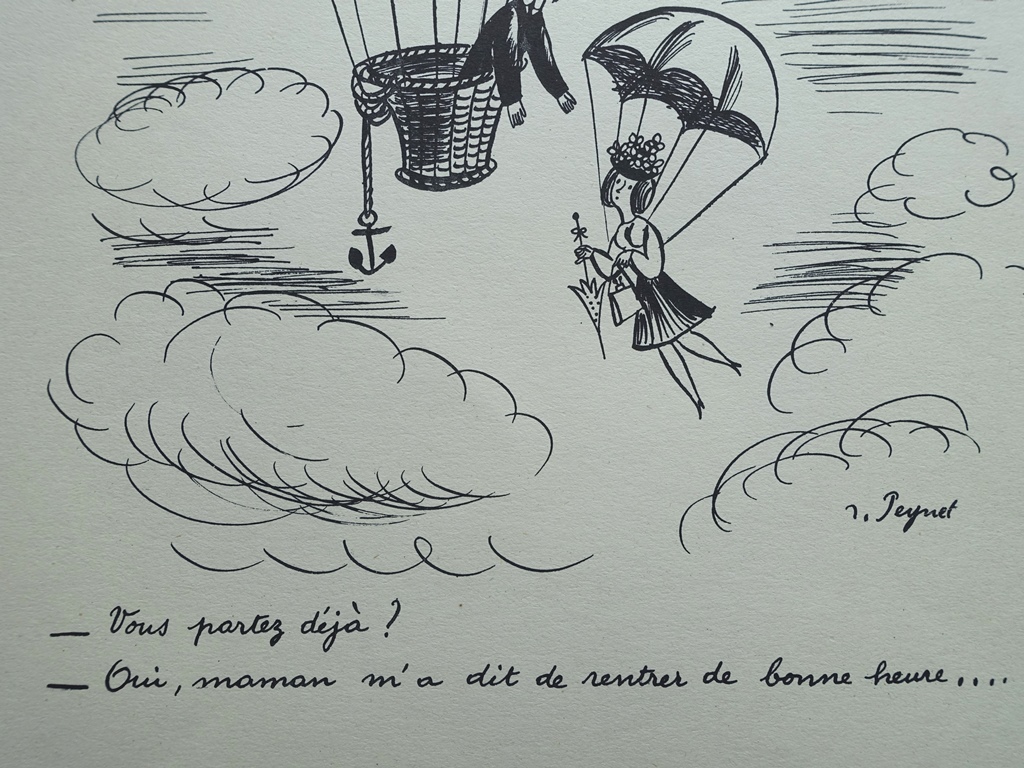 r. Peynet
— Vous partez déjà ?
— Oui, maman m'a dit de rentrer de bonne heure....